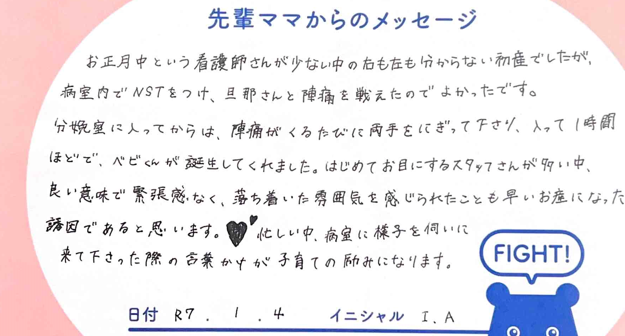 先輩ママからのメッセージ
お正月中という看護師さんが少ない中の右も左も分からない初産でしたが、
病室内でNSTをつけ、旦那さんと陣痛を戦えたのでよかったです。
分娩室に入ってからは、陣痛がくるたびに両手をにぎって下さり、入って1時間
ほどで、ベビくんが誕生してくれました。はじめてお目にするスタッフさんが多い中、
良い意味で緊張感なく、落ち着いた雰囲気を感じられたことも早いお産になった
誘因であると思います。忙しい中、病室に様子を伺いに
来て下さった際の言葉かけが子育ての励みになります。
FIGHT!
日付 R7 . 1 . 4 イニシャル I.A